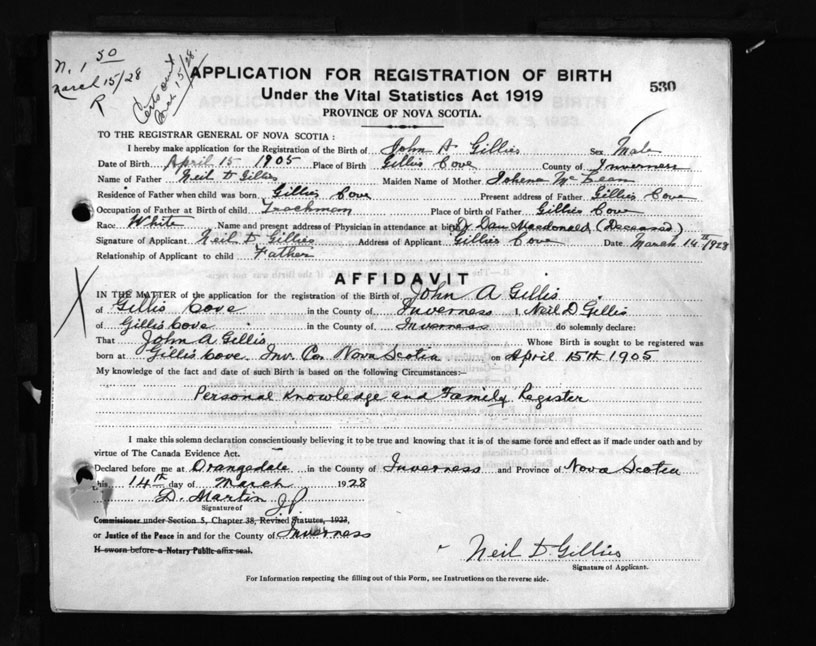 N. 1 50
March 15/28
R
Certs sent
Mar 15/28.
APPLICATION FOR REGISTRATION OF BIRTH
530
Under the Vital Statistics Act 1919
PROVINCE OF NOVA SCOTIA.
TO THE REGISTRAR GENERAL OF NOVA SCOTIA :
I hereby make application for the Registration of the Birth of John A Gillis Sex Male
Date of Birth April 15 1905 Place of Birth Gillis Cove County of Inverness
Name of Father Neil D Gillis Maiden Name of Mother Johena McLean
Residence of Father when child was born Gillis Cove Present address of Father Gillis Cove
Occupation of Father at Birth of child Trackman Place of birth of Father Gillis Cove
Race White Name and present address of Physician in attendance at birth Dr Dan Macdonald (Deceased)
Signature of Applicant Neil D Gillies Address of Applicant Gillis Cove Date March 14th 1928
Relationship of Applicant to child Father
AFFIDAVIT
IN THE MATTER of the application for the registration of the Birth of John A Gillis
of Gillis Cove in the County of Inverness I, Neil D. Gillis
of Gillis Cove in the County of Inverness do solemnly declare:
That John A Gillis Whose Birth is sought to be registered was
born at Gillis Cove. Inv. Co. Nova Scotia on April 15th 1905
My knowledge of the fact and date of such Birth is based on the following Circumstances:—
Personal Knowledge and Family Register
I make this solemn declaration conscientiously believing it to be true and knowing that it is of the same force and effect as if made under oath and by
virtue of The Canada Evidence Act.
Declared before me at Orangedale in the County of Inverness and Province of Nova Scotia
this 14th day of March 1928
D. Martin J P
Signature of
Commissioner under Section 5, Chapter 38, Revised Statutes, 1923,
or Justice of the Peace in and for the County of Inverness
If sworn before a Notary Public affix seal.
Neil D. Gillies
Signature of Applicant.
For Information respecting the filling out of this Form, see Instructions on the reverse side.